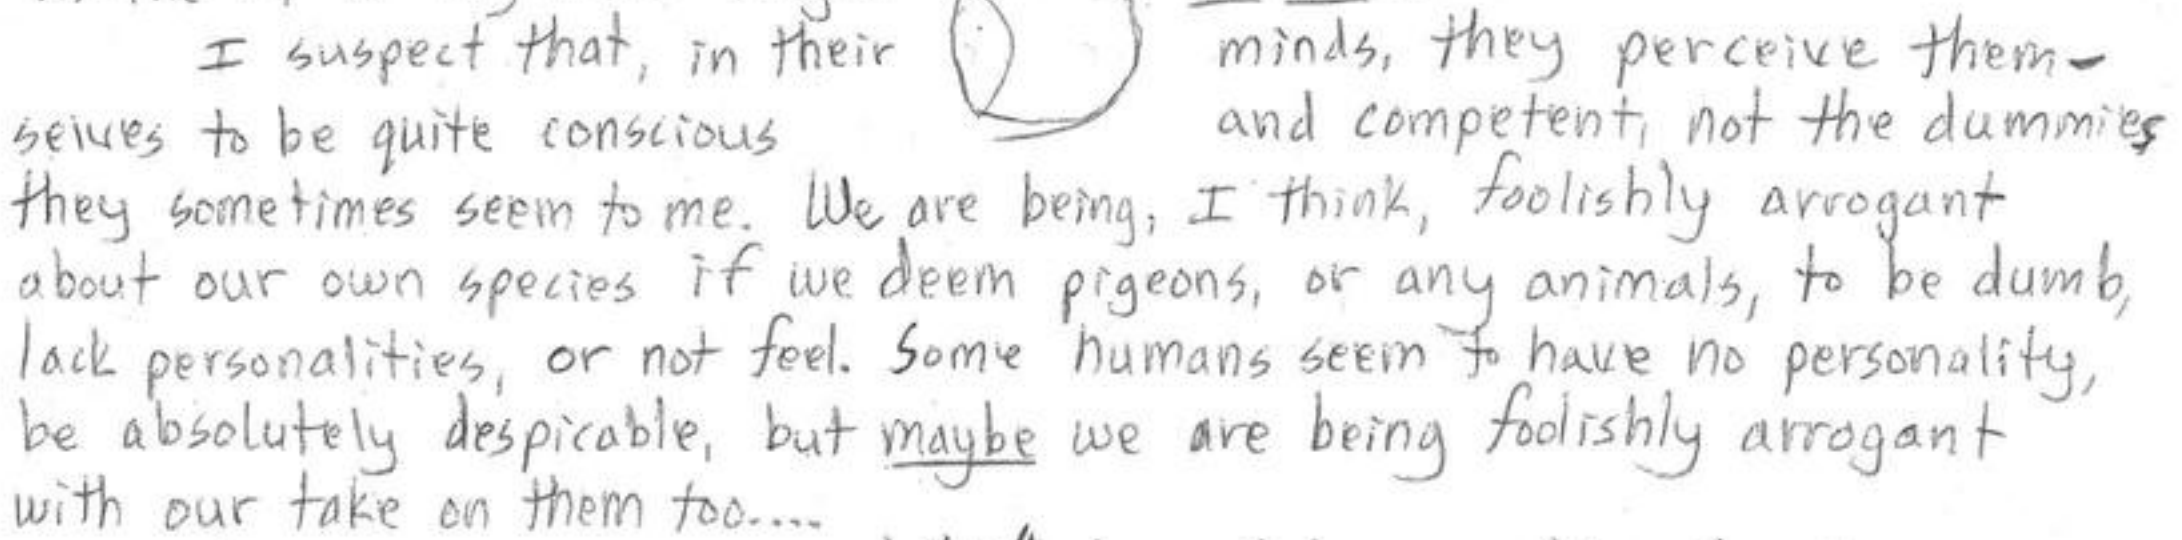 I suspect that, in their minds, they perceive them-
selves to be quite conscious and competent, not the dummies
they sometimes seem to me. We are being, I think, foolishly arrogant
about our own species if we deem pigeons, or any animals, to be dumb,
lack personalities, or not feel. Some humans seem to have no personality,
be absolutely despicable, but maybe we are being foolishly arrogant
with our take on them too....